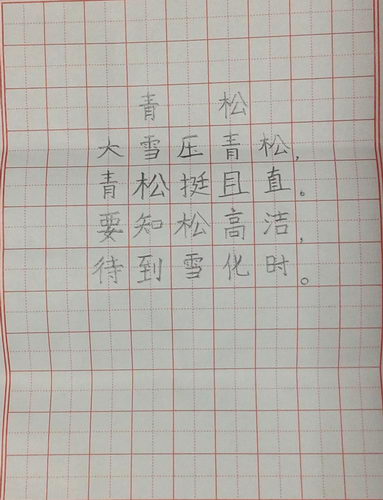 青松
大雪压青松,
青松挺且直。
要知松高洁,
待到雪化时。